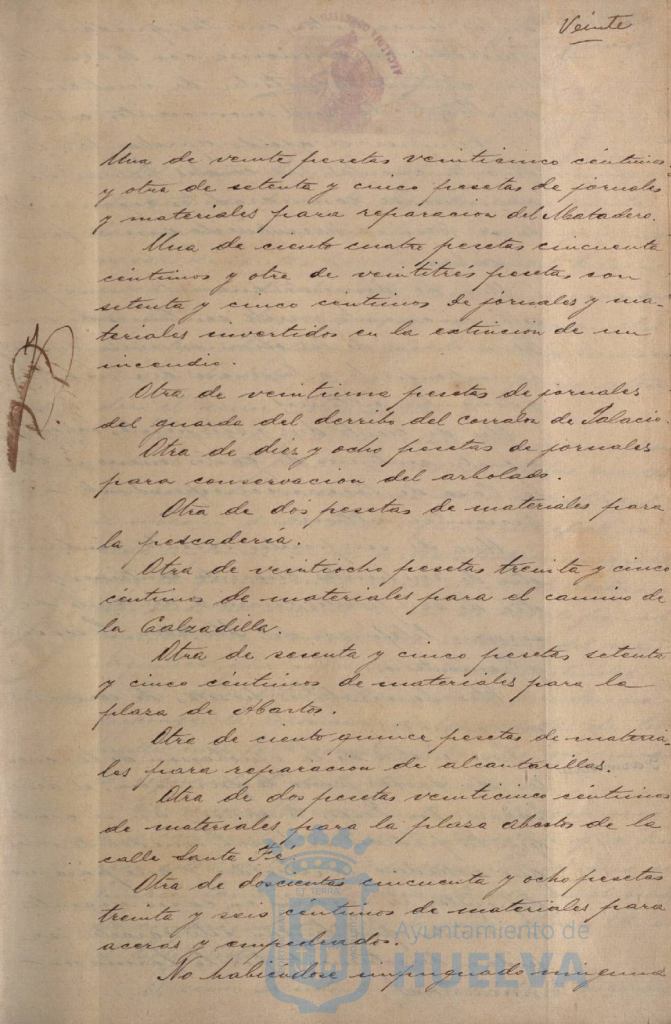 Veinte
Una de veinte pesetas veinticinco céntimos
y otra de setenta y cinco pesetas de jornales
y materiales para reparacion del Matadero.
Una de ciento cuatro pesetas cincuenta
céntimos y otra de veintitrés pesetas con
setenta y cinco céntimos de jornales y ma-
teriales invertidos en la extincion de un
incendio.
Otra de veintiuna pesetas de jornales
del guarda del derribo del corralon de Palacio.
Otra de diez y ocho pesetas de jornales
para conservacion del arbolado.
Otra de dos pesetas de materiales para
la pescadería.
Otra de veintiocho pesetas treinta y cinco
céntimos de materiales para el camino de
la Calzadilla.
Otra de sesenta y cinco pesetas setenta
y cinco céntimos de materiales para la
plaza de Abastos.
Otra de ciento quince pesetas de materia-
les para reparacion de alcantarillas.
Otra de dos pesetas veinticinco céntimos
de materiales para la plaza Abastos de la
calle Santa Fé.
Otra de doscientas cincuenta y ocho pesetas
treinta y seis céntimos de materiales para
aceras y empedrados.
No habiéndose impugnado ninguna
Ayuntamiento de
HUELVA